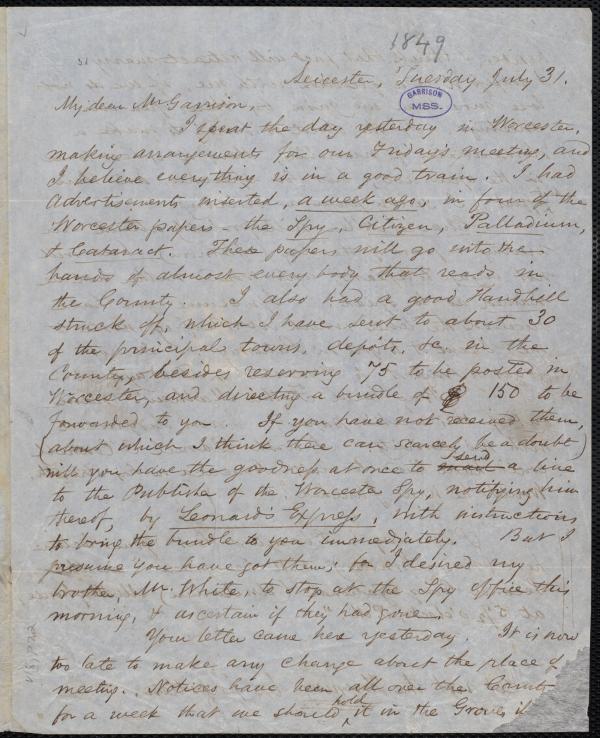 1849
Leicester, Tuesday July 31.
GARRISON
MSS.
My dear Mr Garrison,
I spent the day yesterday in Worcester,
making arrangements for our Friday's meeting, and
I believe everything is in a good train. I had
Advertisements inserted, a week ago, in four of the
Worcester papers - the Spy, Citizen, Palladium,
& Cataract. These papers will go into the
hands of almost every body that reads in
the County. I also had a good Handbill
struck off, which I have sent to about 30
of the principal towns, depots, &c. in the
County, besides reserving 75 to be posted in
Worcester, and directing a bundle of 150 to be
forwarded to you. If you have not received them,
(about which I think there can scarcely be a doubt)
will you have the goodness at once to send a line
to the Publisher of the Worcester Spy, notifying him
thereof, by Leonard's Express, with instructions
to bring the bundle to you immediately. But I
presume you have got them; for I desired my
brother, Mr. White, to stop at the Spy office this
morning, & ascertain if they had gone.
Your letter came here yesterday. It is now
too late to make any change about the place of
meeting. Notices have been all over the County
for a week that we should hold it in the Grove, if